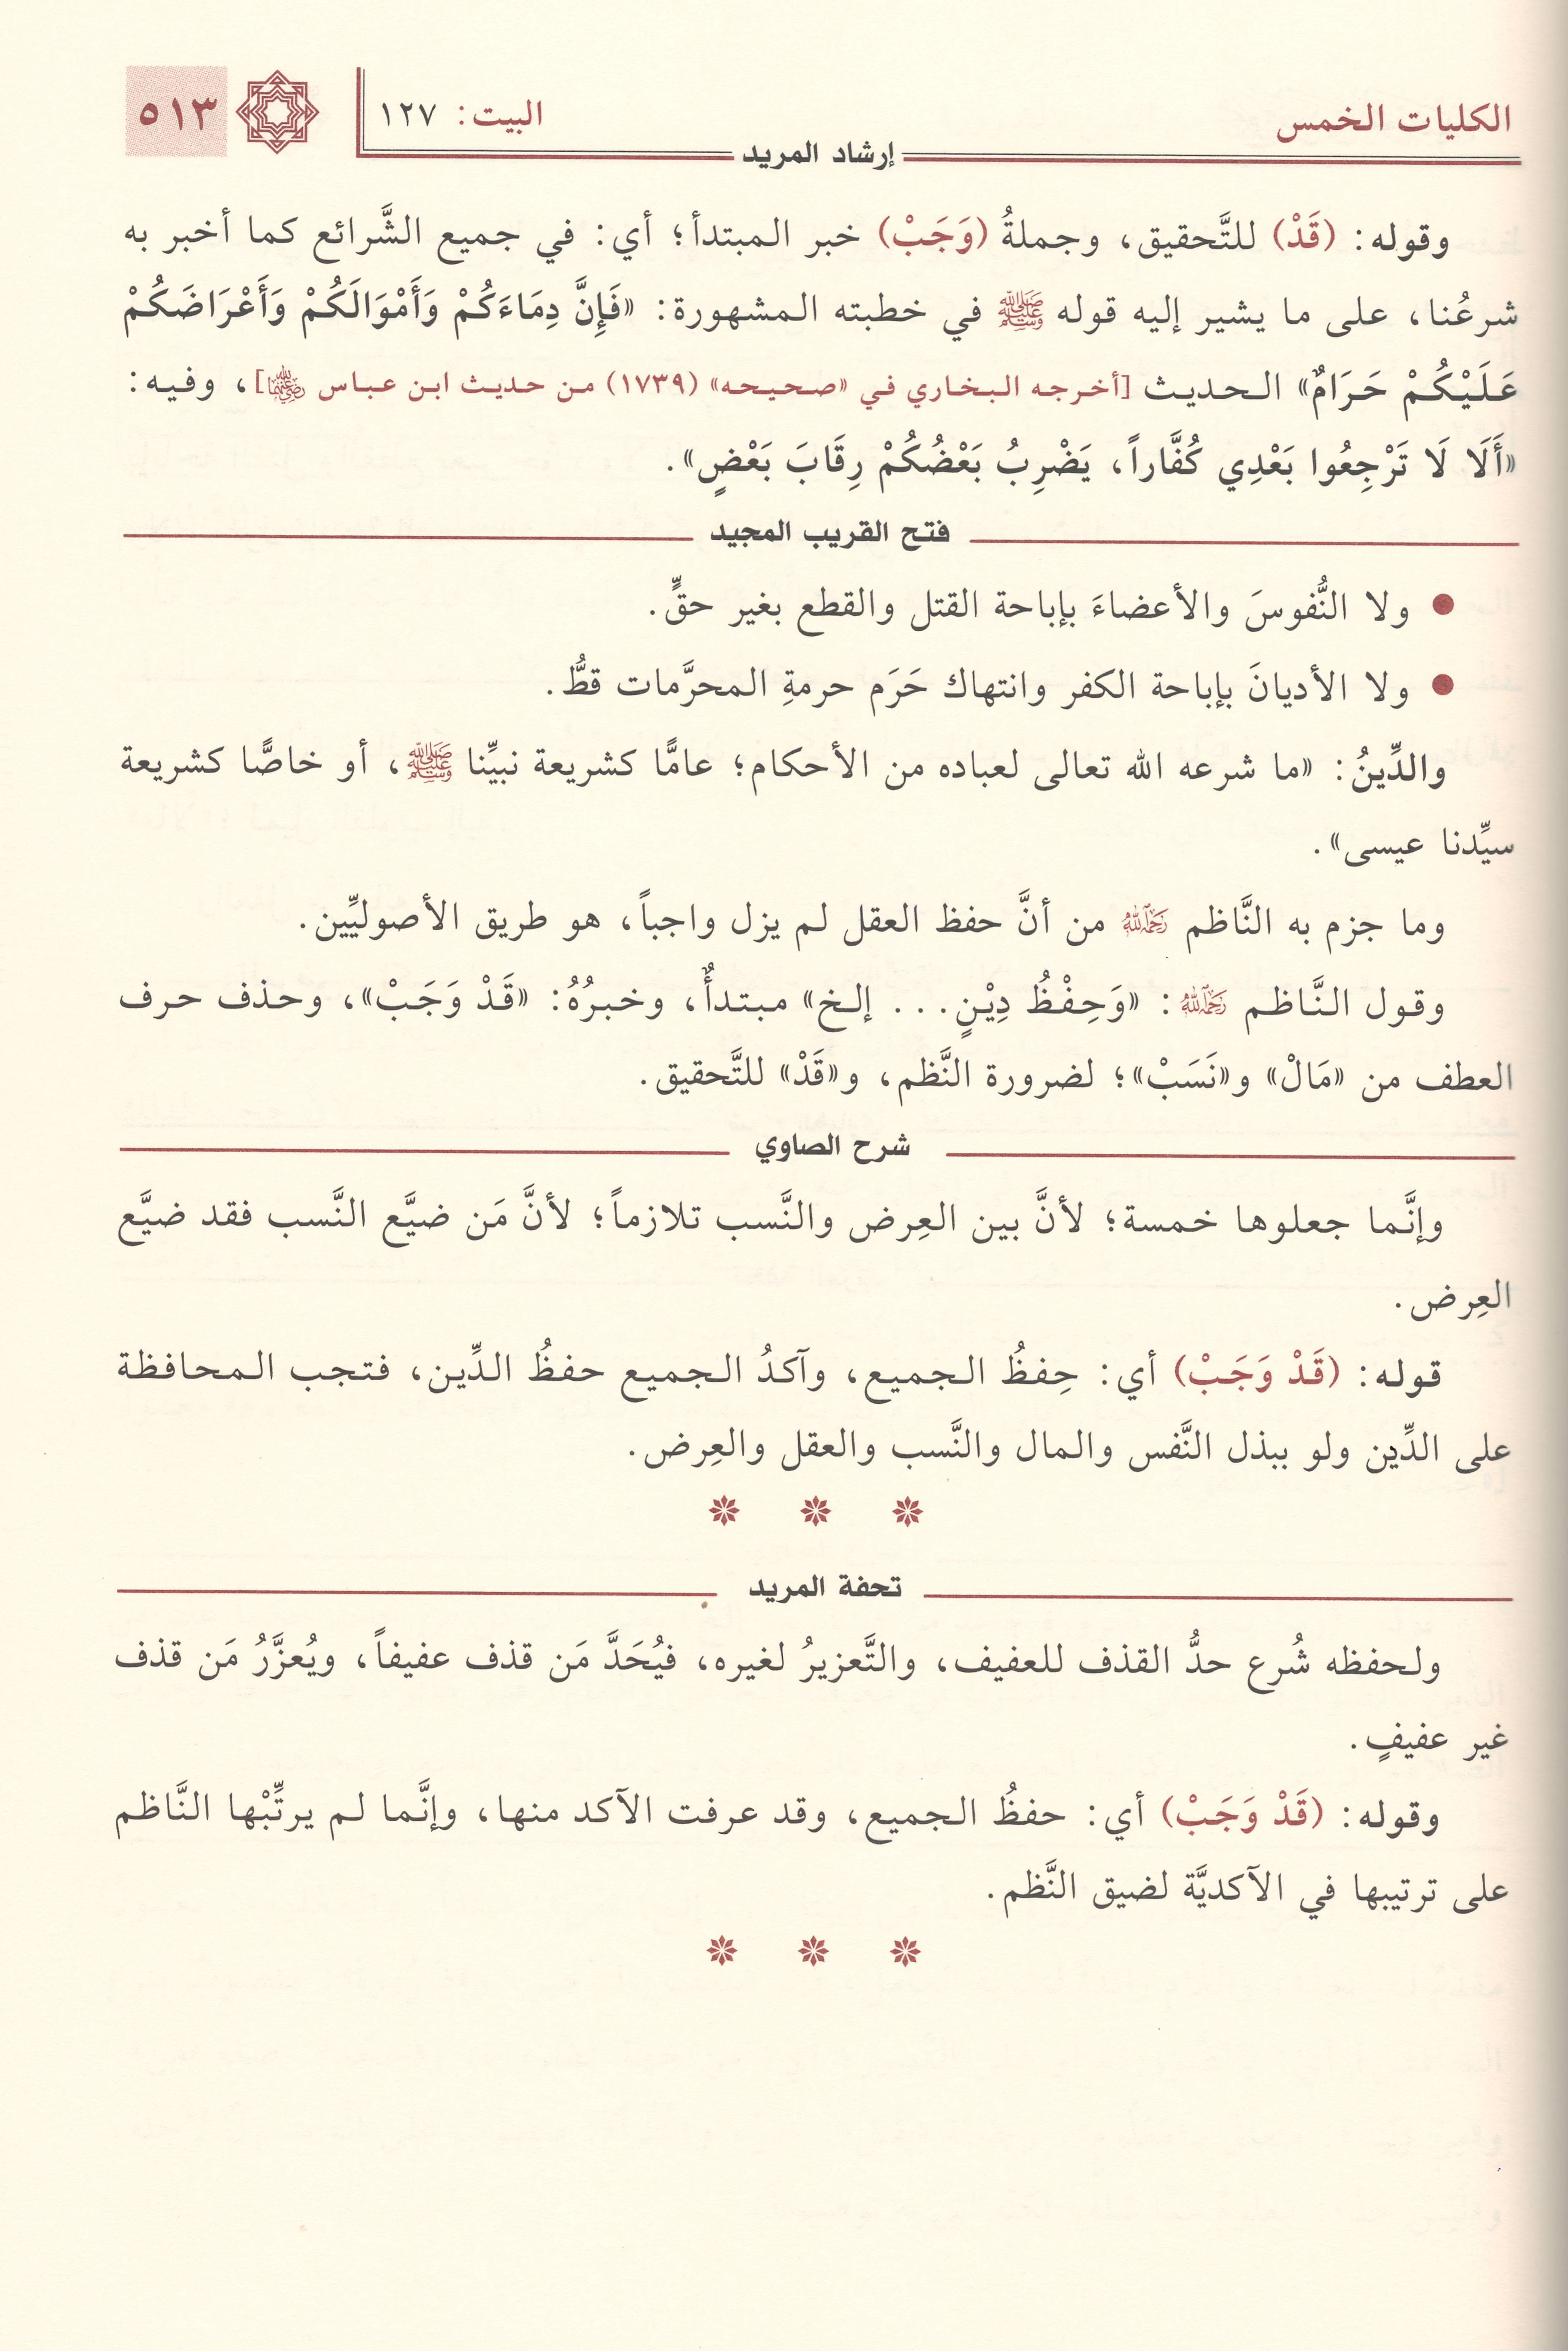 الكليات الخمس البيت: ١٢٧ ٥١٣
إرشاد المريد
وقوله: (قَدْ) للتَّحقيق، وجملةُ (وَجَبْ) خبر المبتدأ؛ أي: في جميع الشَّرائع كما أخبر به
شرعُنا، على ما يشير إليه قوله ﷺ في خطبته المشهورة: «فَإِنَّ دِمَاءَكُمْ وَأَمْوَالَكُمْ وَأَعْرَاضَكُمْ
عَلَيْكُمْ حَرَامٌ» الحديث [أخرجه البخاري في «صحيحه» (١٧٣٩) من حديث ابن عباس رضي الله عنهما]، وفيه:
«أَلَا لَا تَرْجِعُوا بَعْدِي كُفَّاراً، يَضْرِبُ بَعْضُكُمْ رِقَابَ بَعْضٍ».
فتح القريب المجيد
● ولا النُّفوسَ والأعضاءَ بإباحة القتل والقطع بغير حقٍّ.
● ولا الأديانَ بإباحة الكفر وانتهاك حَرَم حرمةِ المحرَّمات قطُّ.
والدِّينُ: «ما شرعه الله تعالى لعباده من الأحكام؛ عامًّا كشريعة نبيِّنا ﷺ، أو خاصًّا كشريعة
سيِّدنا عيسى».
وما جزم به النَّاظم رحمه الله من أنَّ حفظ العقل لم يزل واجباً، هو طريق الأصوليِّين.
وقول النَّاظم رحمه الله: «وَحِفْظُ دِيْنٍ... إلخ» مبتدأٌ، وخبرُهُ: «قَدْ وَجَبْ»، وحذف حرف
العطف من «مَالْ» و«نَسَبْ»؛ لضرورة النَّظم، و«قَدْ» للتَّحقيق.
شرح الصاوي
وإنَّما جعلوها خمسة؛ لأنَّ بين العِرض والنَّسب تلازماً؛ لأنَّ مَن ضيَّع النَّسب فقد ضيَّع
العِرض.
قوله: (قَدْ وَجَبْ) أي: حِفظُ الجميع، وآكدُ الجميع حفظُ الدِّين، فتجب المحافظة
على الدِّين ولو ببذل النَّفس والمال والنَّسب والعقل والعِرض.
تحفة المريد
ولحفظه شُرع حدُّ القذف للعفيف، والتَّعزيرُ لغيره، فيُحَدَّ مَن قذف عفيفاً، ويُعزَّرُ مَن قذف
غير عفيفٍ.
وقوله: (قَدْ وَجَبْ) أي: حفظُ الجميع، وقد عرفت الآكد منها، وإنَّما لم يرتِّبْها النَّاظم
على ترتيبها في الآكديَّة لضيق النَّظم.